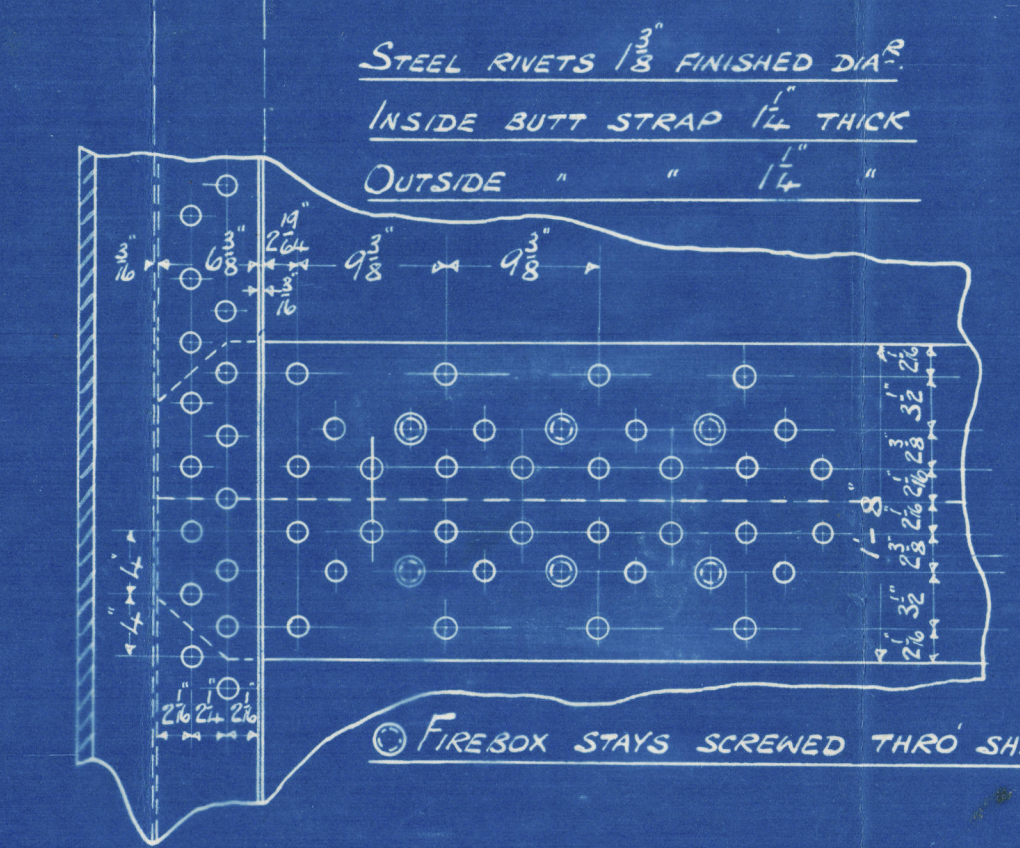 STEEL RIVETS 1 3/8" FINISHED DIAR.
INSIDE BUTT STRAP 1 1/4" THICK
OUTSIDE " " 1 1/4" "
3/16" 6 3/8" 2 19/64" 9 3/8" 9 3/8"
3/16"
2 1/16
3 1/2"
2 3/8
2 1/16
1'-8"
2 1/16
2 3/8
3 1/2"
2 1/16
4"
4"
2 1/16" 2 1/4" 2 1/16"
FIREBOX STAYS SCREWED THRO' SH